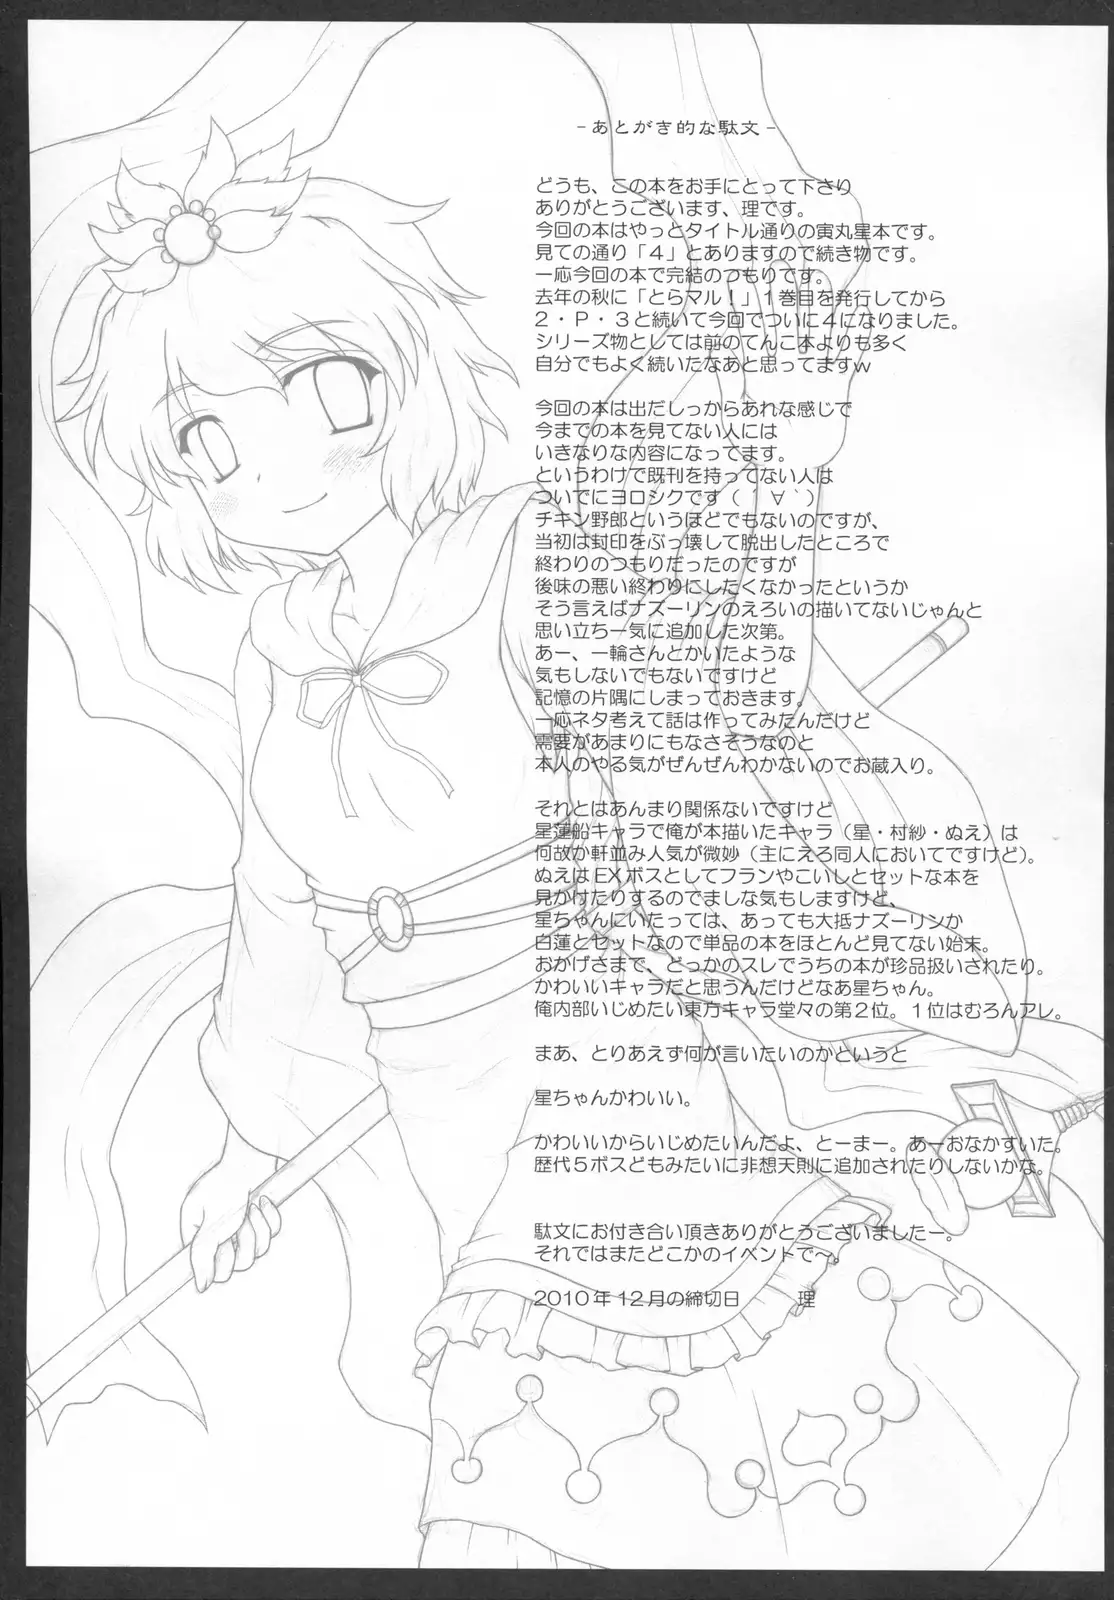 －あとがき的な駄文－
どうも、この本をお手にとって下さり
ありがとうございます、理です。
今回の本はやっとタイトル通りの寅丸星本です。
見ての通り「４」とありますので続き物です。
一応今回の本で完結のつもりです。
去年の秋に「とらマル！」１巻目を発行してから
２・Ｐ・３と続いて今回でついに４になりました。
シリーズ物としては前のてんこ本よりも多く
自分でもよく続いたなあと思ってますｗ
今回の本は出だしっからあれな感じで
今までの本を見てない人には
いきなりな内容になってます。
というわけで既刊を持ってない人は
ついでにヨロシクです（´∀｀）
チキン野郎というほどでもないのですが、
当初は封印をぶっ壊して脱出したところで
終わりのつもりだったのですが
後味の悪い終わりにしたくなかったというか
そう言えばナズーリンのえろいの描いてないじゃんと
思い立ち一気に追加した次第。
あー、一輪さんとかいたような
気もしないでもないですけど
記憶の片隅にしまっておきます。
一応ネタ考えて話は作ってみたんだけど
需要があまりにもなさそうなのと
本人のやる気がぜんぜんわかないのでお蔵入り。
それとはあんまり関係ないですけど
星蓮船キャラで俺が本描いたキャラ（星・村紗・ぬえ）は
何故か軒並み人気が微妙（主にえろ同人においてですけど）。
ぬえはEXボスとしてフランやこいしとセットな本を
見かけたりするのでましな気もしますけど、
星ちゃんにいたっては、あっても大抵ナズーリンか
白蓮とセットなので単品の本をほとんど見てない始末。
おかげさまで、どっかのスレでうちの本が珍品扱いされたり。
かわいいキャラだと思うんだけどなあ星ちゃん。
俺内部いじめたい東方キャラ堂々の第２位。１位はむろんアレ。
まあ、とりあえず何が言いたいのかというと
星ちゃんかわいい。
かわいいからいじめたいんだよ、とーまー。あーおなかすいた。
歴代５ボスどもみたいに非想天則に追加されたりしないかな。
駄文にお付き合い頂きありがとうございましたー。
それではまたどこかのイベントで〜。
2010年12月の締切日　　理